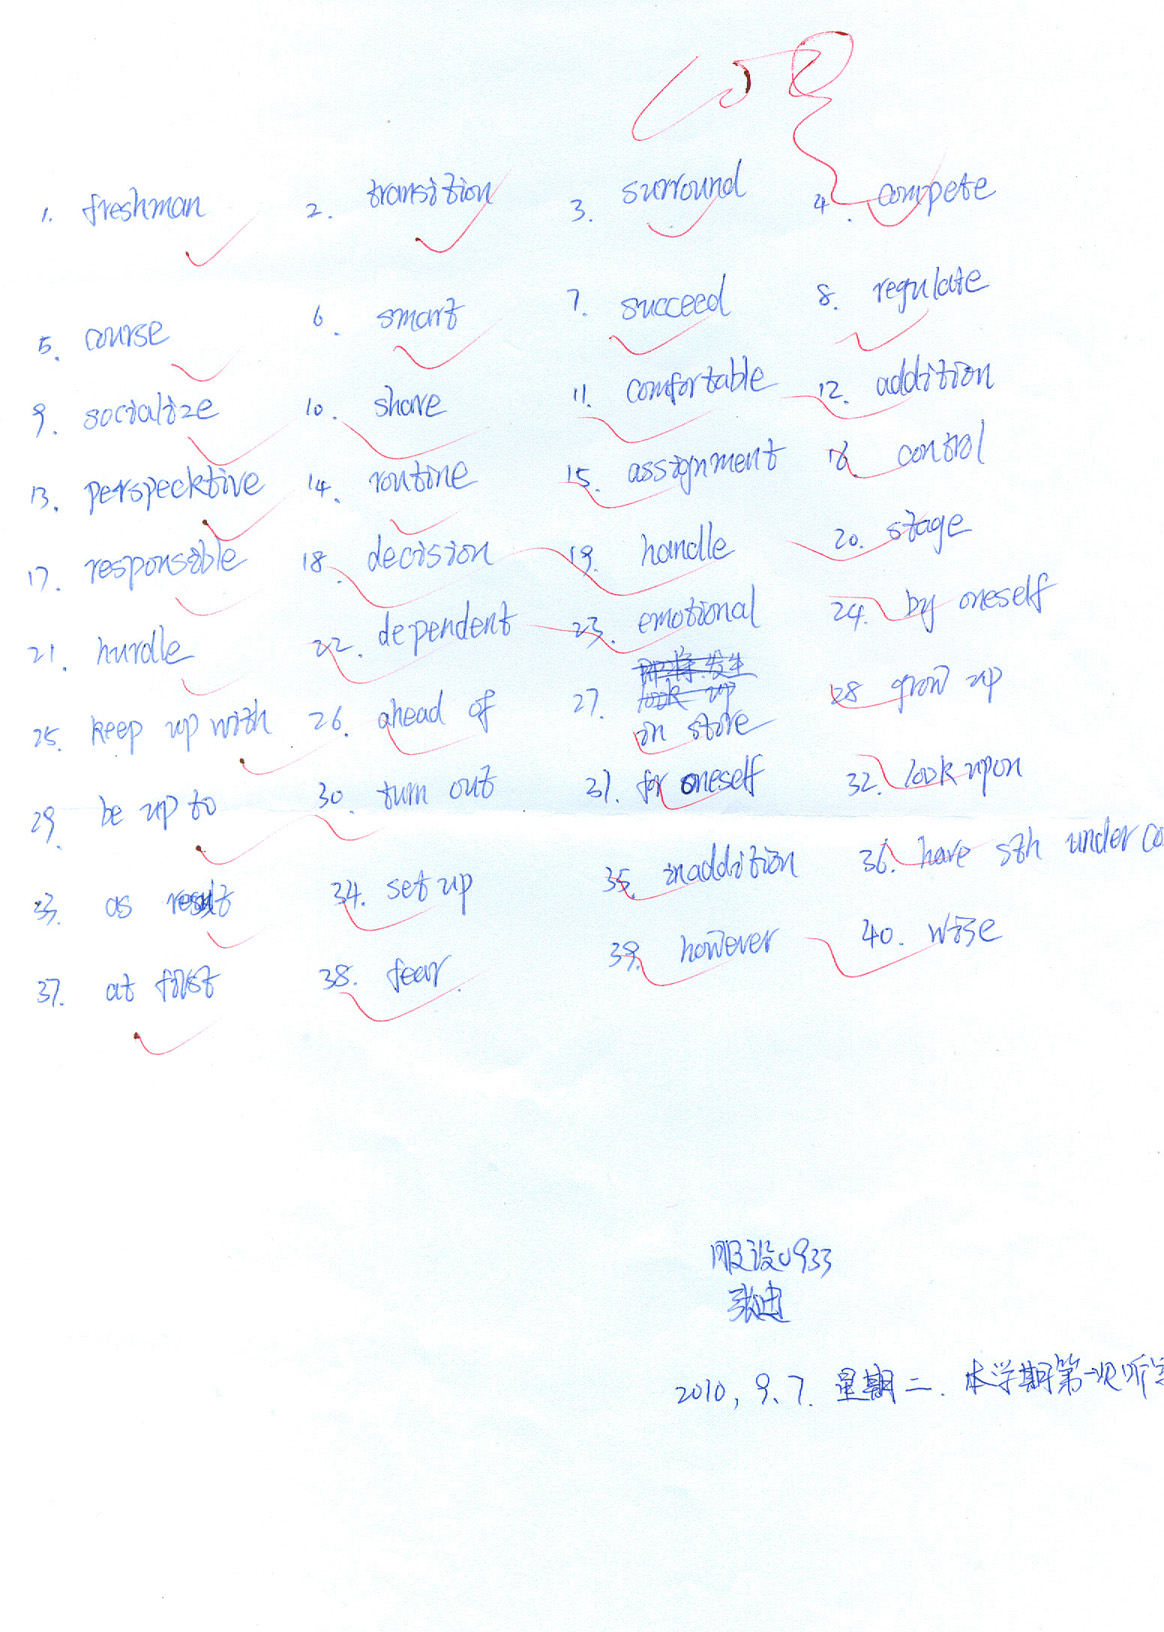 100
1. freshman 2. transition 3. surround 4. compete
5. course 6. smart 7. succeed 8. regulate
9. socialize 10. share 11. comfortable 12. addition
13. perspecktive 14. routine 15. assignment 16. control
17. responsible 18. decision 19. handle 20. stage
21. hurdle 22. dependent 23. emotional 24. by oneself
25. keep up with 26. ahead of 27. in store 28 grow up
29. be up to 30. turn out 31. for oneself 32. look upon
33. as result 34. set up 35. inaddition 36. have sth under co
37. at first 38. fear. 39. however 40. wise
服设0933
张迪
2010, 9.7. 星期二. 本学期第一次听写